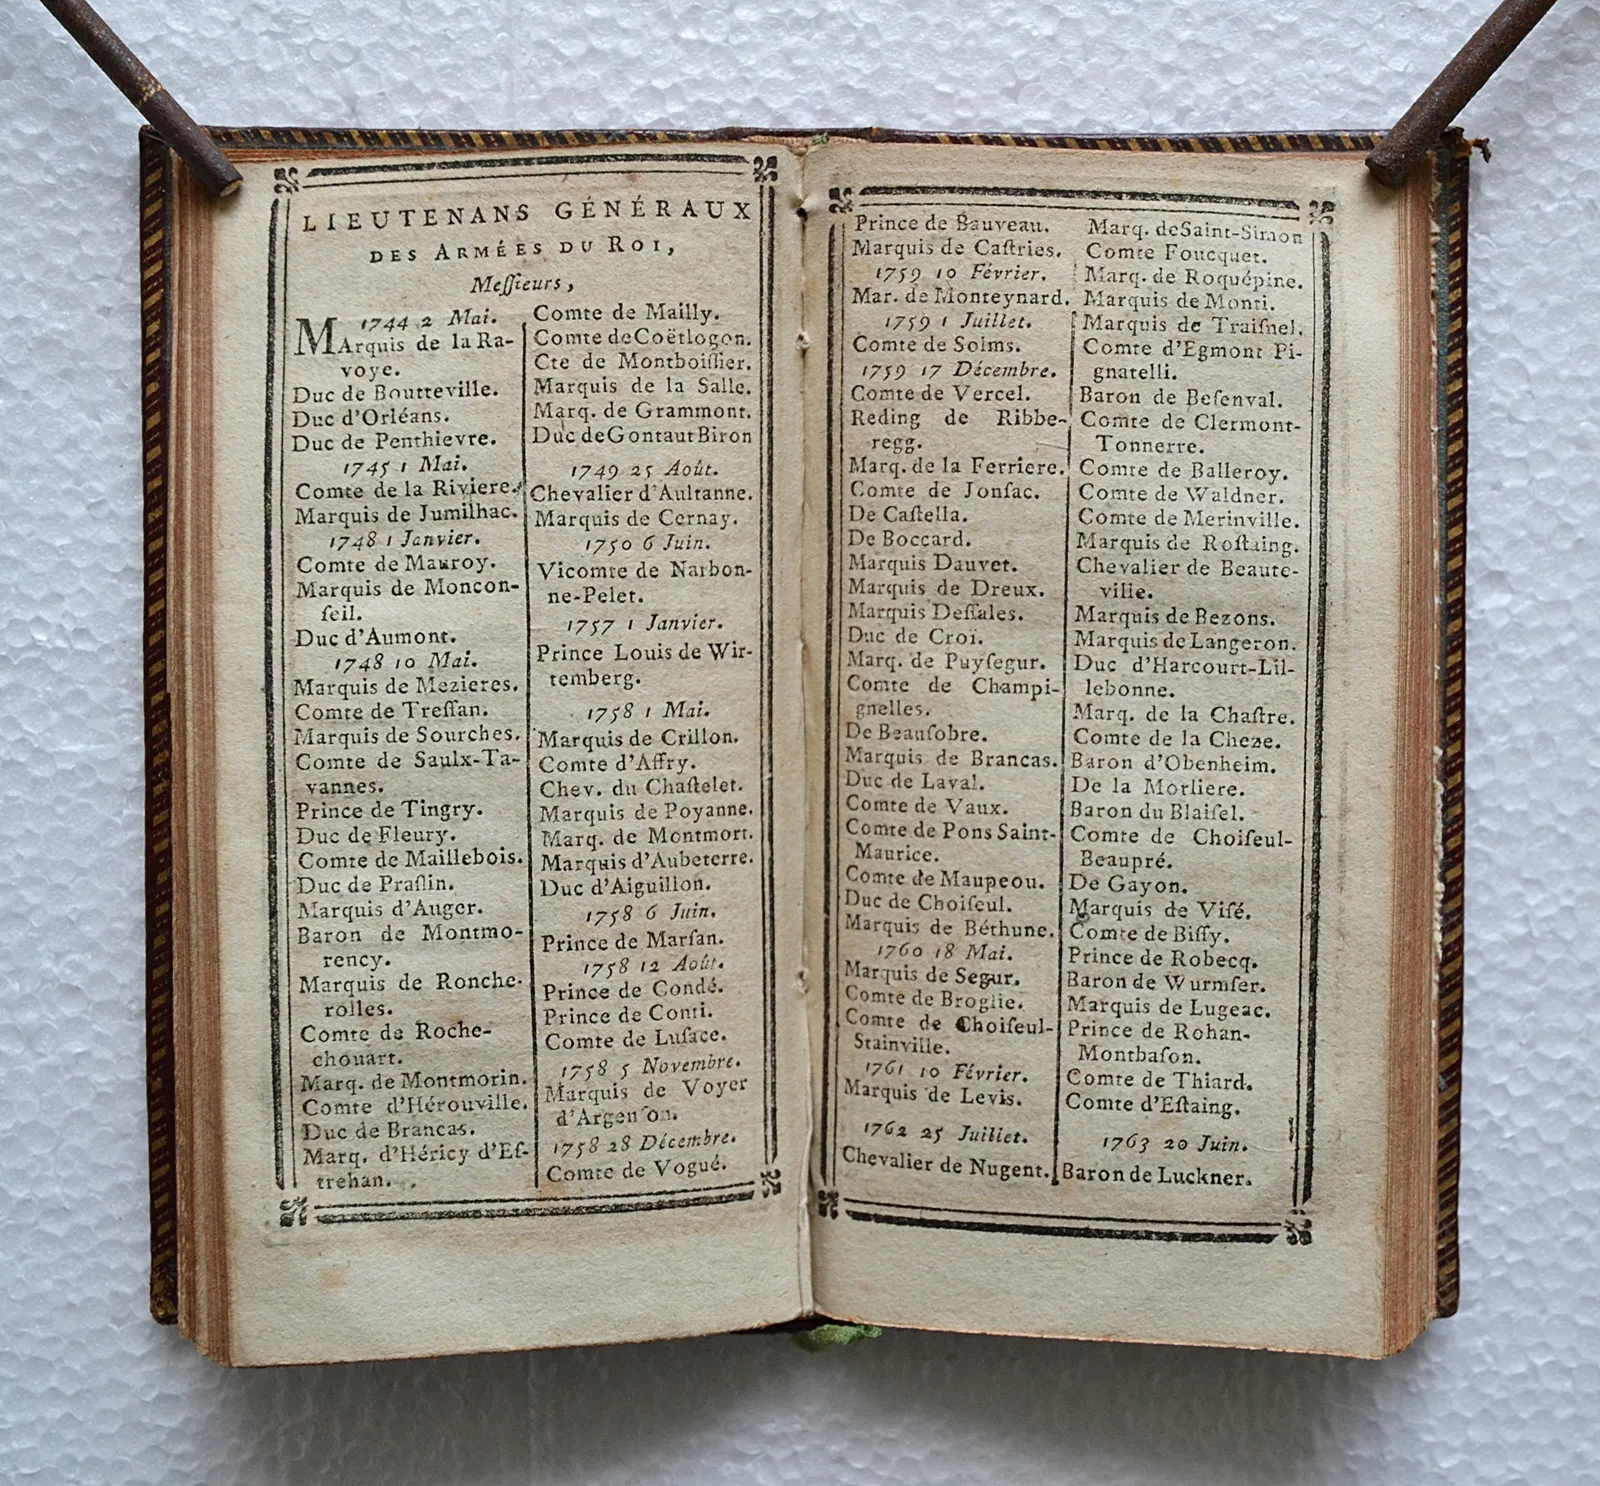 LIEUTENANS GÉNÉRAUX
DES ARMÉES DU ROI,
Meſſieurs,
1744 2 Mai.
MArquis de la Ra-
voye.
Duc de Boutteville.
Duc d'Orléans.
Duc de Penthievre.
1745 1 Mai.
Comte de la Riviere.
Marquis de Jumilhac.
1748 1 Janvier.
Comte de Mauroy.
Marquis de Moncon-
ſeil.
Duc d'Aumont.
1748 10 Mai.
Marquis de Mezieres.
Comte de Treſſan.
Marquis de Sourches.
Comte de Saulx-Ta-
vannes.
Prince de Tingry.
Duc de Fleury.
Comte de Maillebois.
Duc de Praſlin.
Marquis d'Auger.
Baron de Montmo-
rency.
Marquis de Ronche-
rolles.
Comte de Roche-
chouart.
Marq. de Montmorin.
Comte d'Hérouville.
Duc de Brancas.
Marq. d'Héricy d'Eſ-
trehan.
Comte de Mailly.
Comte de Coëtlogon.
Cte de Montboiſſier.
Marquis de la Salle.
Marq. de Grammont.
Duc de Gontaut Biron
1749 25 Août.
Chevalier d'Aultanne.
Marquis de Cernay.
1750 6 Juin.
Vicomte de Narbon-
ne-Pelet.
1757 1 Janvier.
Prince Louis de Wir-
temberg.
1758 1 Mai.
Marquis de Crillon.
Comte d'Affry.
Chev. du Chaſtelet.
Marquis de Poyanne.
Marq. de Montmort.
Marquis d'Aubeterre.
Duc d'Aiguillon.
1758 6 Juin.
Prince de Marſan.
1758 12 Août.
Prince de Condé.
Prince de Conti.
Comte de Luſace.
1758 5 Novembre.
Marquis de Voyer
d'Argenſon.
1758 28 Décembre.
Comte de Vogué.
Prince de Bauveau.
Marquis de Caſtries.
1759 10 Février.
Mar. de Monteynard.
1759 1 Juillet.
Comte de Solms.
1759 17 Décembre.
Comte de Vercel.
Reding de Ribbe-
regg.
Marq. de la Ferriere.
Comte de Jonſac.
De Caſtella.
De Boccard.
Marquis Dauvet.
Marquis de Dreux.
Marquis Deſſales.
Duc de Croi.
Marq. de Puyſegur.
Comte de Champi-
gnelles.
De Beauſobre.
Marquis de Brancas.
Duc de Laval.
Comte de Vaux.
Comte de Pons Saint-
Maurice.
Comte de Maupeou.
Duc de Choiſeul.
Marquis de Béthune.
1760 18 Mai.
Marquis de Segur.
Comte de Broglie.
Comte de Choiſeul-
Stainville.
1761 10 Février.
Marquis de Levis.
1762 25 Juillet.
Chevalier de Nugent.
Marq. de Saint-Simon
Comte Foucquet.
Marq. de Roquépine.
Marquis de Monti.
Marquis de Traiſnel.
Comte d'Egmont Pi-
gnatelli.
Baron de Beſenval.
Comte de Clermont-
Tonnerre.
Comte de Balleroy.
Comte de Waldner.
Comte de Merinville.
Marquis de Roſtaing.
Chevalier de Beaute-
ville.
Marquis de Bezons.
Marquis de Langeron.
Duc d'Harcourt-Lil-
lebonne.
Marq. de la Chaſtre.
Comte de la Cheze.
Baron d'Obenheim.
De la Morliere.
Baron du Blaiſel.
Comte de Choiſeul-
Beaupré.
De Gayon.
Marquis de Viſé.
Comte de Biſſy.
Prince de Robecq.
Baron de Wurmſer.
Marquis de Lugeac.
Prince de Rohan-
Montbaſon.
Comte de Thiard.
Comte d'Eſtaing.
1763 20 Juin.
Baron de Luckner.